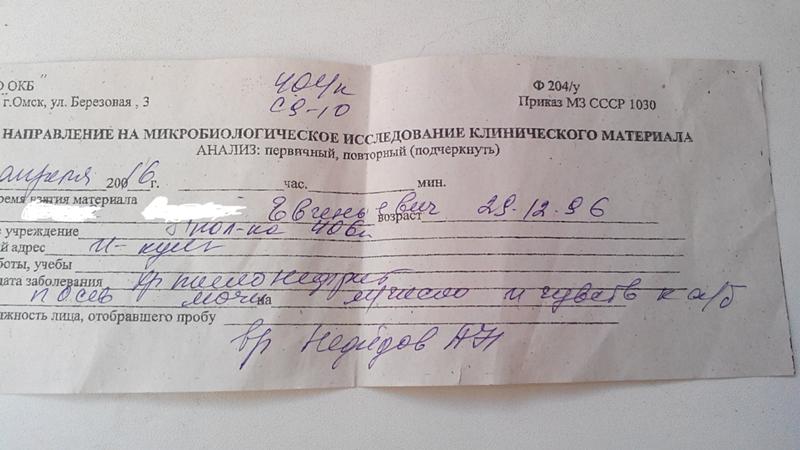 О ОКБ"
г.Омск, ул. Березовая , 3
404к
с 9-10
Ф 204/у
Приказ МЗ СССР 1030
НАПРАВЛЕНИЕ НА МИКРОБИОЛОГИЧЕСКОЕ ИССЛЕДОВАНИЕ КЛИНИЧЕСКОГО МАТЕРИАЛА
АНАЛИЗ: первичный, повторный (подчеркнуть)
апреля 200 16 г. час. мин.
ремя взятия материала
Евгеньевич возраст 29.12.96
е учреждение Пол-ка
й адрес
боты, учебы
дата заболевания хр пиелонефрит
посев мочи на и чувств к а/б
лжность лица, отобравшего пробу
вр Нефедов АН